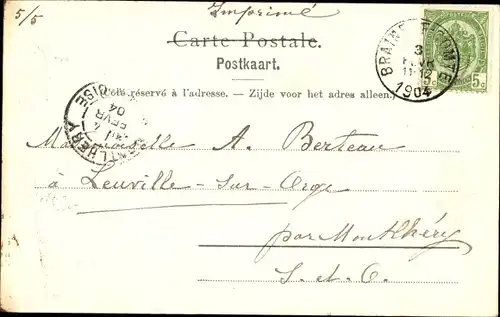 5/5
Imprimé
Carte Postale.
Postkaart.
Côté réservé à l'adresse. – Zijde voor het adres alleen.
BRAINE-LE-COMTE
3
FEVR
11-12
1904
5c
MONTLHERY
OISE
4
FEVR
04
Mademoiselle A. Berteau
à Leuville-sur-Orge
par Montlhéry
S.-et-O.